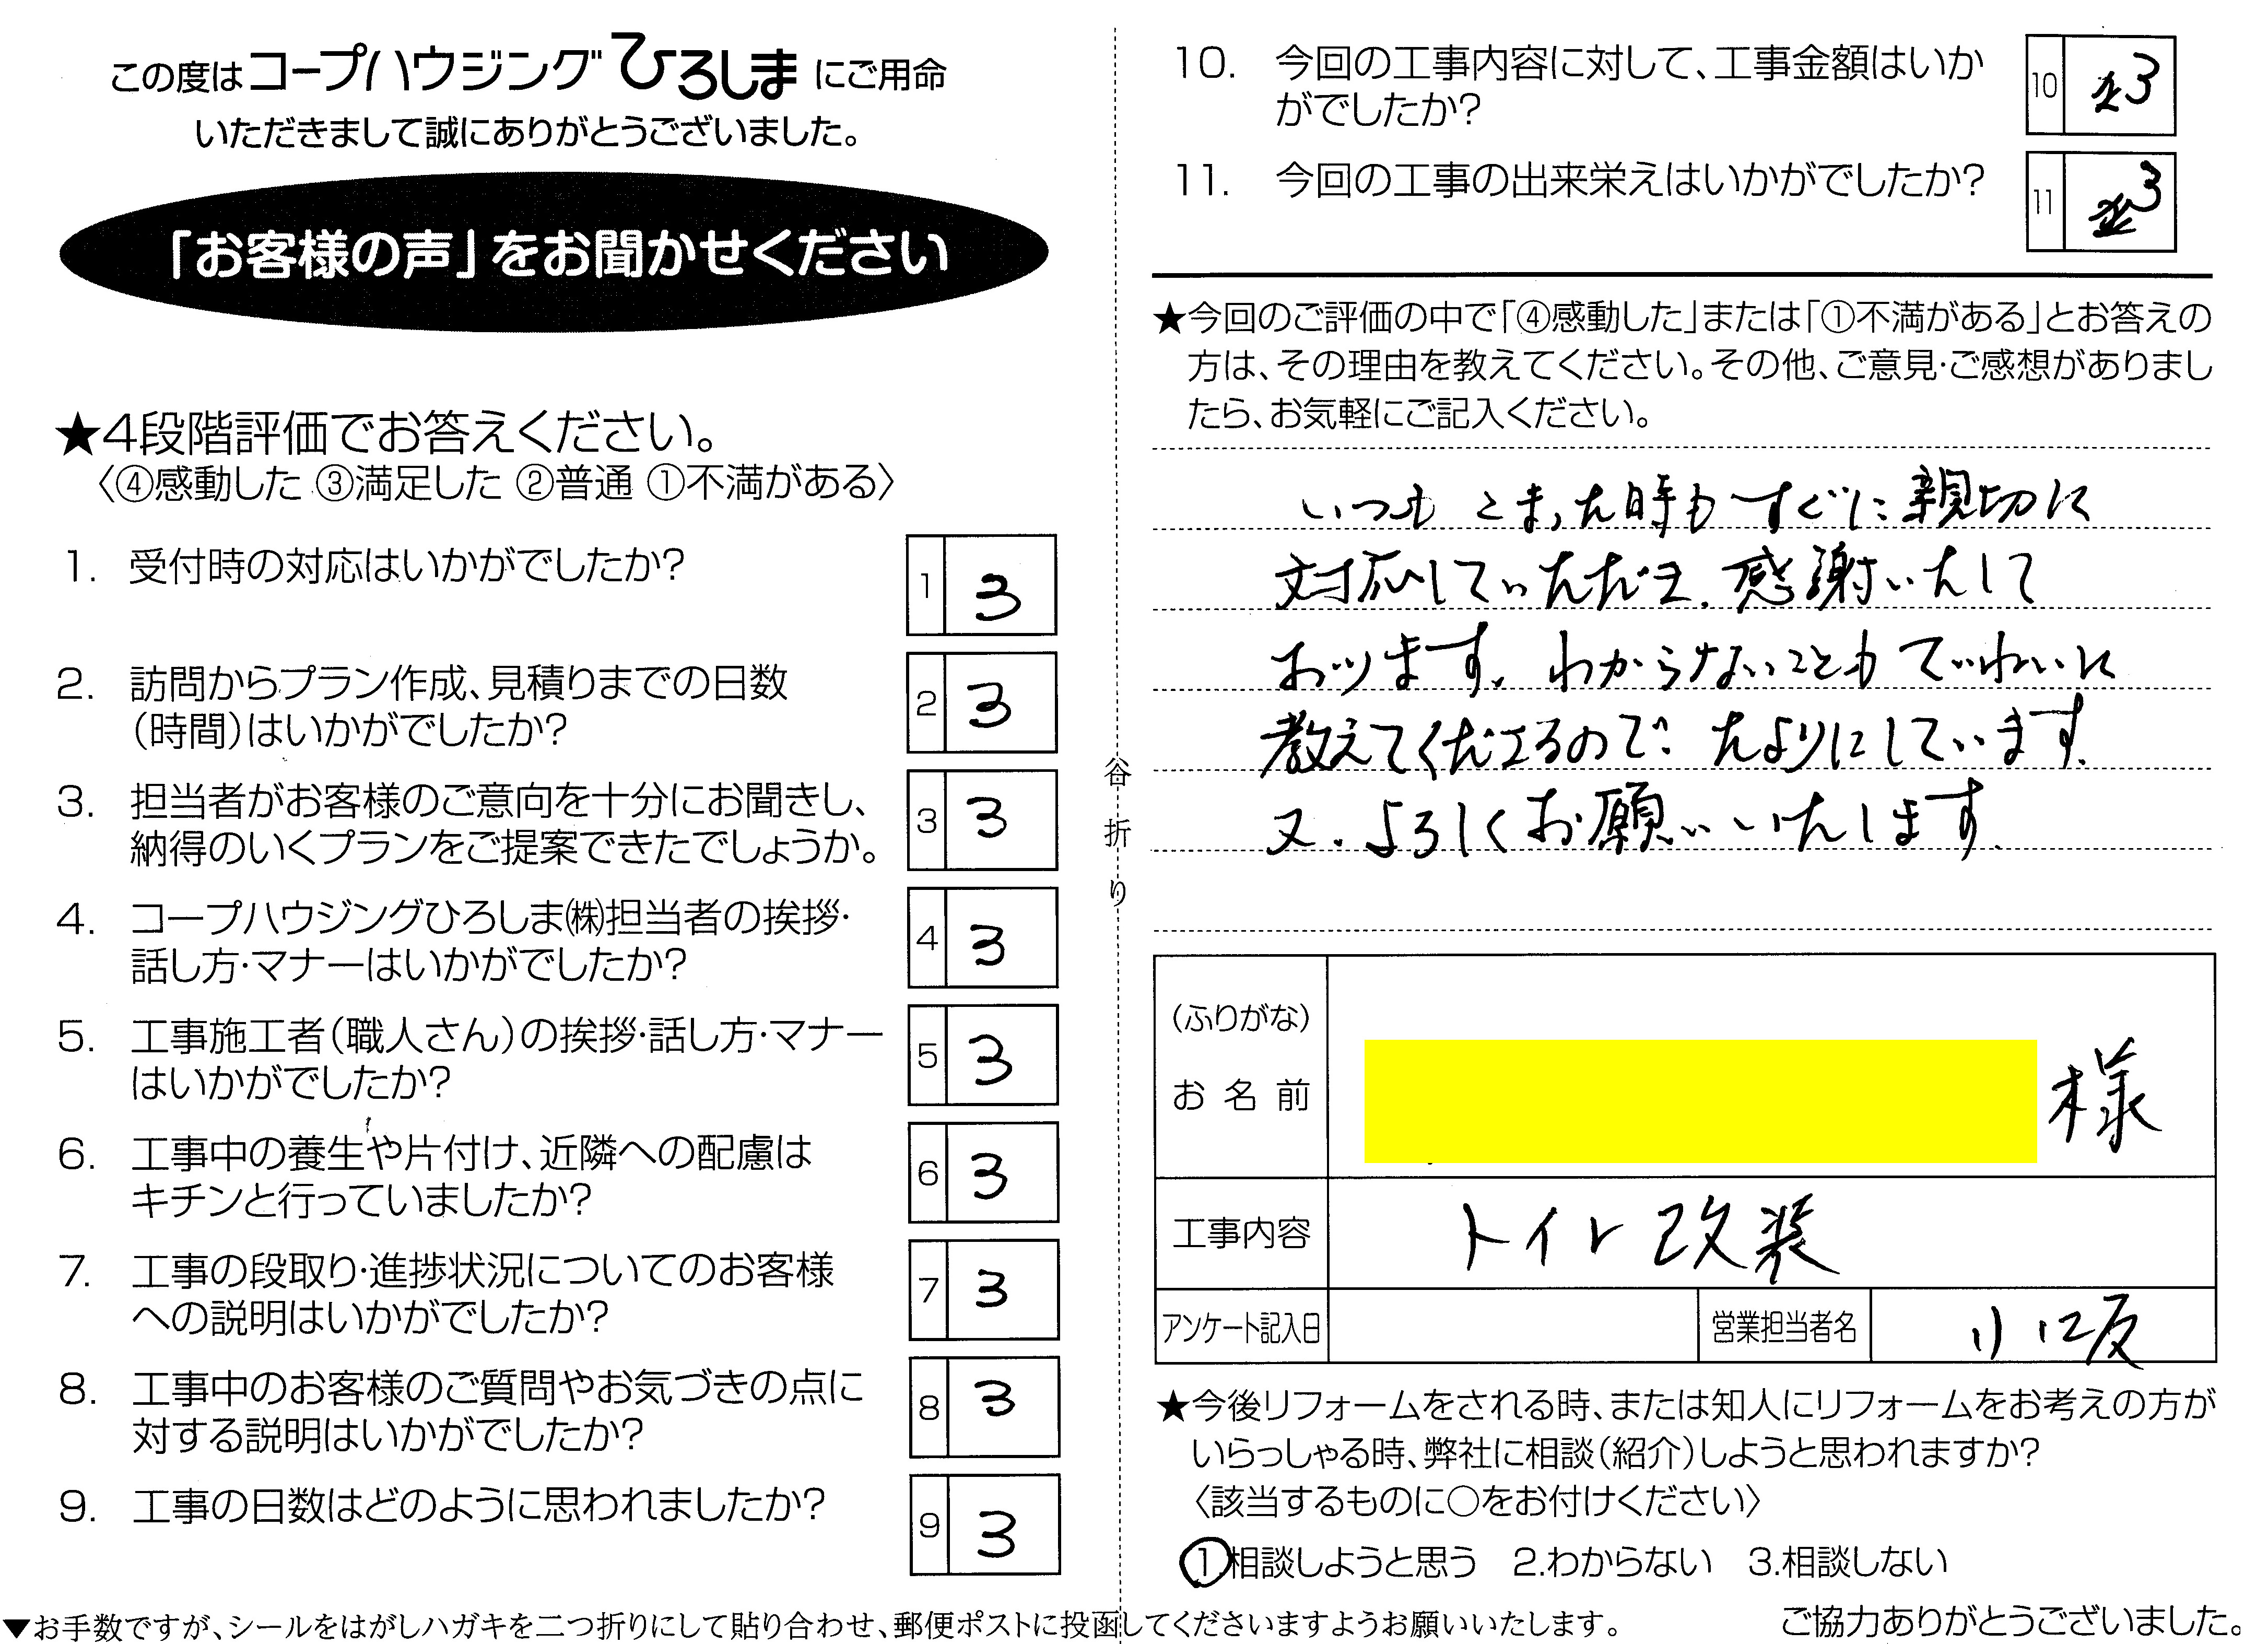 この度はコープハウジングひろしまにご用命
いただきまして誠にありがとうございました。
「お客様の声」をお聞かせください
★4段階評価でお答えください。
〈④感動した ③満足した ②普通 ①不満がある〉
1. 受付時の対応はいかがでしたか?
1 3
2. 訪問からプラン作成、見積りまでの日数
(時間)はいかがでしたか?
2 3
3. 担当者がお客様のご意向を十分にお聞きし、
納得のいくプランをご提案できたでしょうか。
3 3
4. コープハウジングひろしま㈱担当者の挨拶・
話し方・マナーはいかがでしたか?
4 3
5. 工事施工者(職人さん)の挨拶・話し方・マナー
はいかがでしたか?
5 3
6. 工事中の養生や片付け、近隣への配慮は
キチンと行っていましたか?
6 3
7. 工事の段取り・進捗状況についてのお客様
への説明はいかがでしたか?
7 3
8. 工事中のお客様のご質問やお気づきの点に
対する説明はいかがでしたか?
8 3
9. 工事の日数はどのように思われましたか?
9 3
谷折り
10. 今回の工事内容に対して、工事金額はいか
がでしたか?
10 3
11. 今回の工事の出来栄えはいかがでしたか?
11 3
★今回のご評価の中で「④感動した」または「①不満がある」とお答えの
方は、その理由を教えてください。その他、ご意見・ご感想がありまし
たら、お気軽にご記入ください。
いつも こまった時もすぐに親切に
対応していただき、感謝いたして
おります。わからないこともていねいに
教えてくださるので たよりにしています。
又、よろしくお願いいたします。
(ふりがな)
お名前 様
工事内容 トイレ改装
アンケート記入日 営業担当者名 小坂
★今後リフォームをされる時、または知人にリフォームをお考えの方が
いらっしゃる時、弊社に相談(紹介)しようと思われますか?
〈該当するものに○をお付けください〉
1.相談しようと思う 2.わからない 3.相談しない
▼お手数ですが、シールをはがしハガキを二つ折りにして貼り合わせ、郵便ポストに投函してくださいますようお願いいたします。
ご協力ありがとうございました。